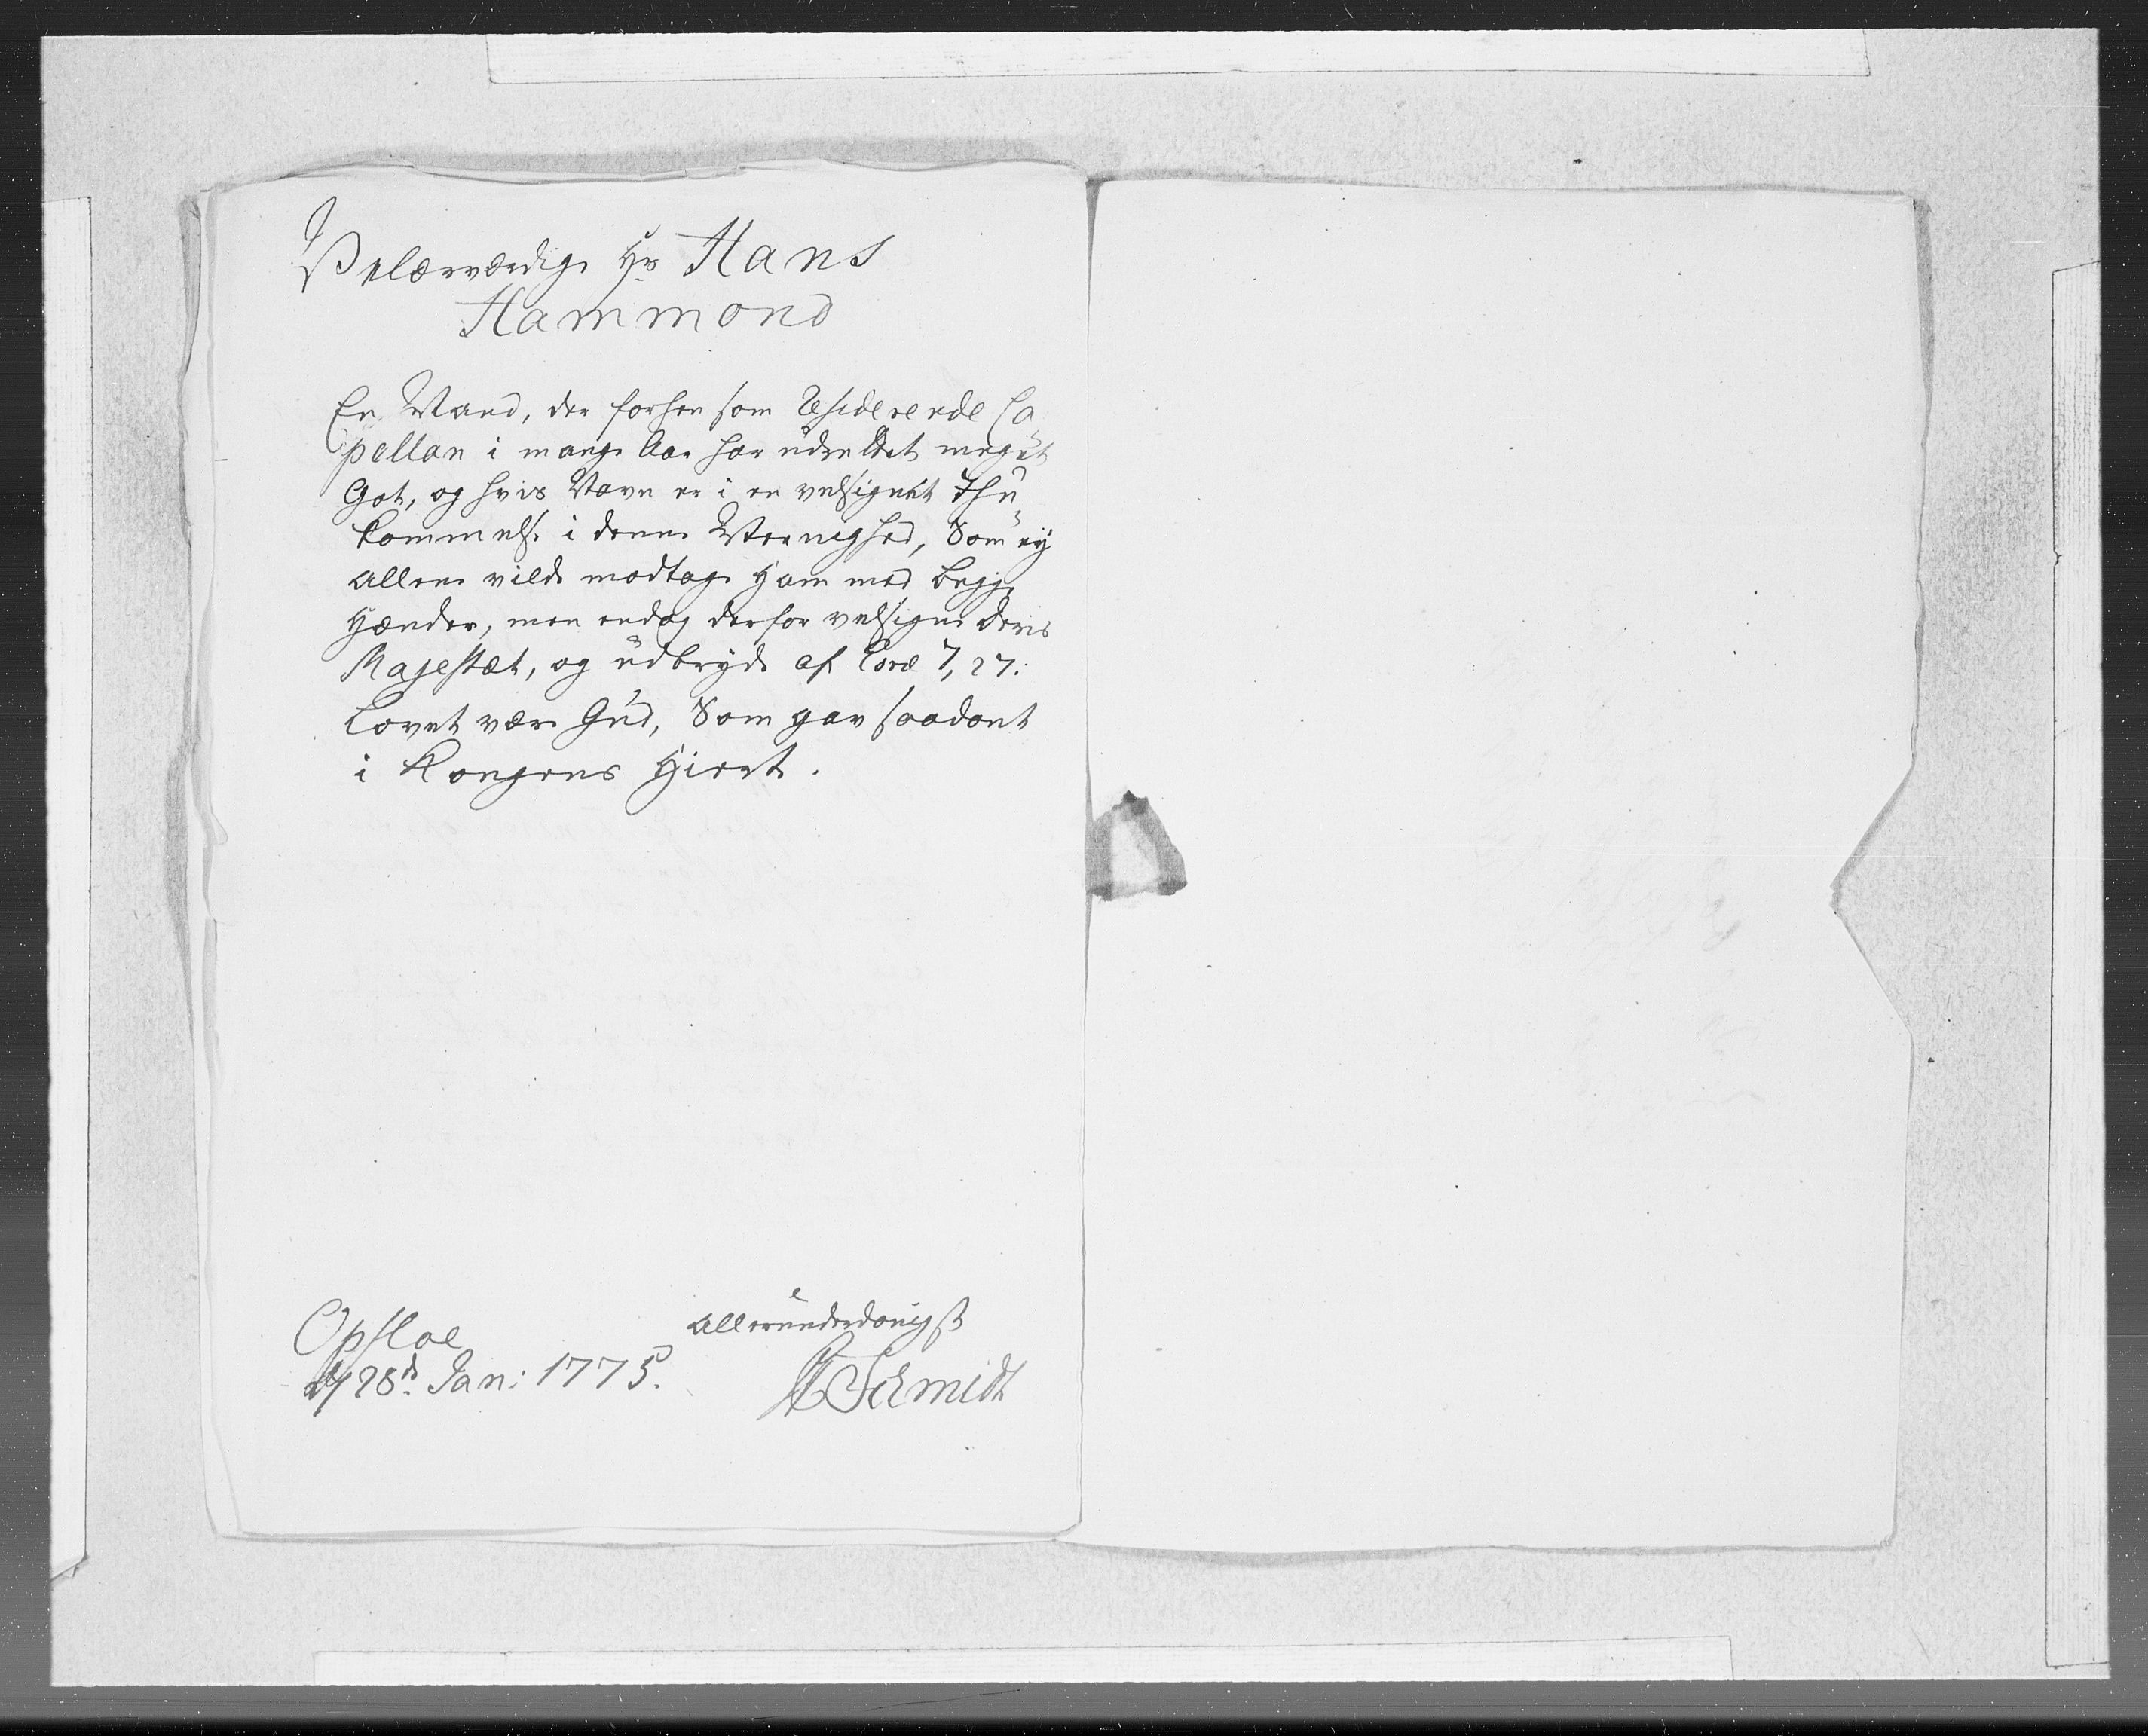 Velærværdige Hr Hans
Hammond
En Mand, der forhen som Residerende Ca„
pellan i mange Aar har udrettet meget
Got, og hvis Navn er i en velsignet Ihu„
kommelse i denne Meenighed, Som ey
alleene vilde modtage Ham med begge
Hænder, men endog derfor velsigne Deris
Majestæt, og udbryde af Esræ 7, 27:
Lovet være Gud, Som gav saadant
i Kongens Hierte.
Opsloe
28de Jan: 1775.
allerunderdanigst
Schmidt